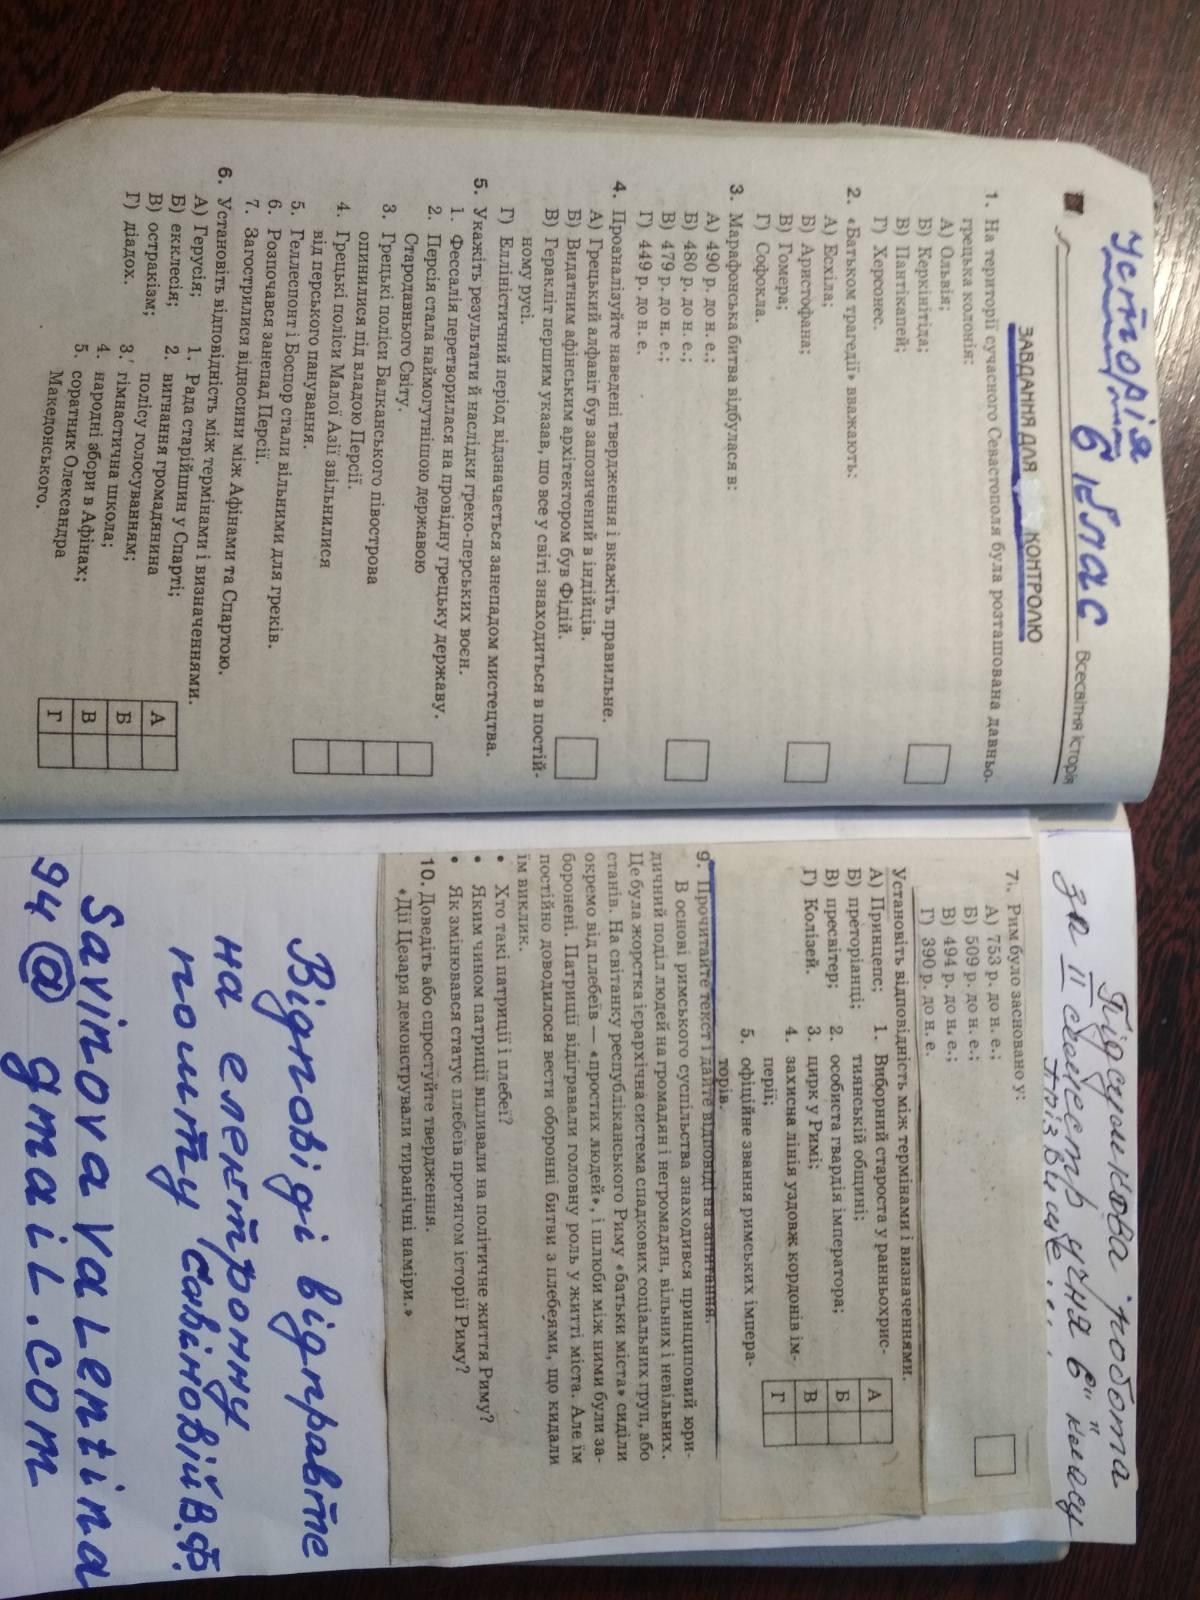 Історія
6 клас
Всесвітня історія
ЗАВДАННЯ ДЛЯ КОНТРОЛЮ
1. На території сучасного Севастополя була розташована давньо-
грецька колонія:
А) Ольвія;
Б) Керкінітіда;
В) Пантікапей;
Г) Херсонес.
2. «Батьком трагедії» вважають:
А) Есхіла;
Б) Аристофана;
В) Гомера;
Г) Софокла.
3. Марафонська битва відбулася в:
А) 490 р. до н. е.;
Б) 480 р. до н. е.;
В) 479 р. до н. е.;
Г) 449 р. до н. е.
4. Проаналізуйте наведені твердження і вкажіть правильне.
А) Грецький алфавіт був запозичений в індійців.
Б) Видатним афінським архітектором був Фідій.
В) Геракліт першим указав, що все у світі знаходиться в постій-
ному русі.
Г) Елліністичний період відзначається занепадом мистецтва.
5. Укажіть результати й наслідки греко-перських воєн.
1. Фессалія перетворилася на провідну грецьку державу.
2. Персія стала наймогутнішою державою
Стародавнього Світу.
3. Грецькі поліси Балканського півострова
опинилися під владою Персії.
4. Грецькі поліси Малої Азії звільнилися
від перського панування.
5. Геллеспонт і Боспор стали вільними для греків.
6. Розпочався занепад Персії.
7. Загострилися відносини між Афінами та Спартою.
6. Установіть відповідність між термінами і визначеннями.
А) Герусія;
Б) екклесія;
В) остракізм;
Г) діадох.
1. Рада старійшин у Спарті;
2. вигнання громадянина
полісу голосуванням;
3. гімнастична школа;
4. народні збори в Афінах;
5. соратник Олександра
Македонського.
А
Б
В
Г
Підсумкова робота
за II семестр учня 6 "" класу
Прізвище....
7. Рим було засновано у:
А) 753 р. до н. е.;
Б) 509 р. до н. е.;
В) 494 р. до н. е.;
Г) 390 р. до н. е.
Установіть відповідність між термінами і визначеннями.
А) Принцепс;
Б) преторіанці;
В) пресвітер;
Г) Колізей.
1. Виборний староста у ранньохрис-
тиянській общині;
2. особиста гвардія імператора;
3. цирк у Римі;
4. захисна лінія уздовж кордонів ім-
перії;
5. офіційне звання римських імпера-
торів.
А
Б
В
Г
9. Прочитайте текст і дайте відповіді на запитання.
В основі римського суспільства знаходився принциповий юри-
дичний поділ людей на громадян і негромадян, вільних і невільних.
Це була жорстка ієрархічна система спадкових соціальних груп, або
станів. На світанку республіканського Риму «батьки міста» сиділи
окремо від плебеїв — «простих людей», і шлюби між ними були за-
боронені. Патриції відігравали головну роль у житті міста. Але їм
постійно доводилося вести оборонні битви з плебеями, що кидали
їм виклик.
• Хто такі патриції і плебеї?
• Яким чином патриції впливали на політичне життя Риму?
• Як змінювався статус плебеїв протягом історії Риму?
10. Доведіть або спростуйте твердження.
«Дії Цезаря демонстрували тиранічні наміри.»
Відповіді відправте
на електронну
пошту Савіновій В.Ф.
Savinova Valentina
94@gmail.com